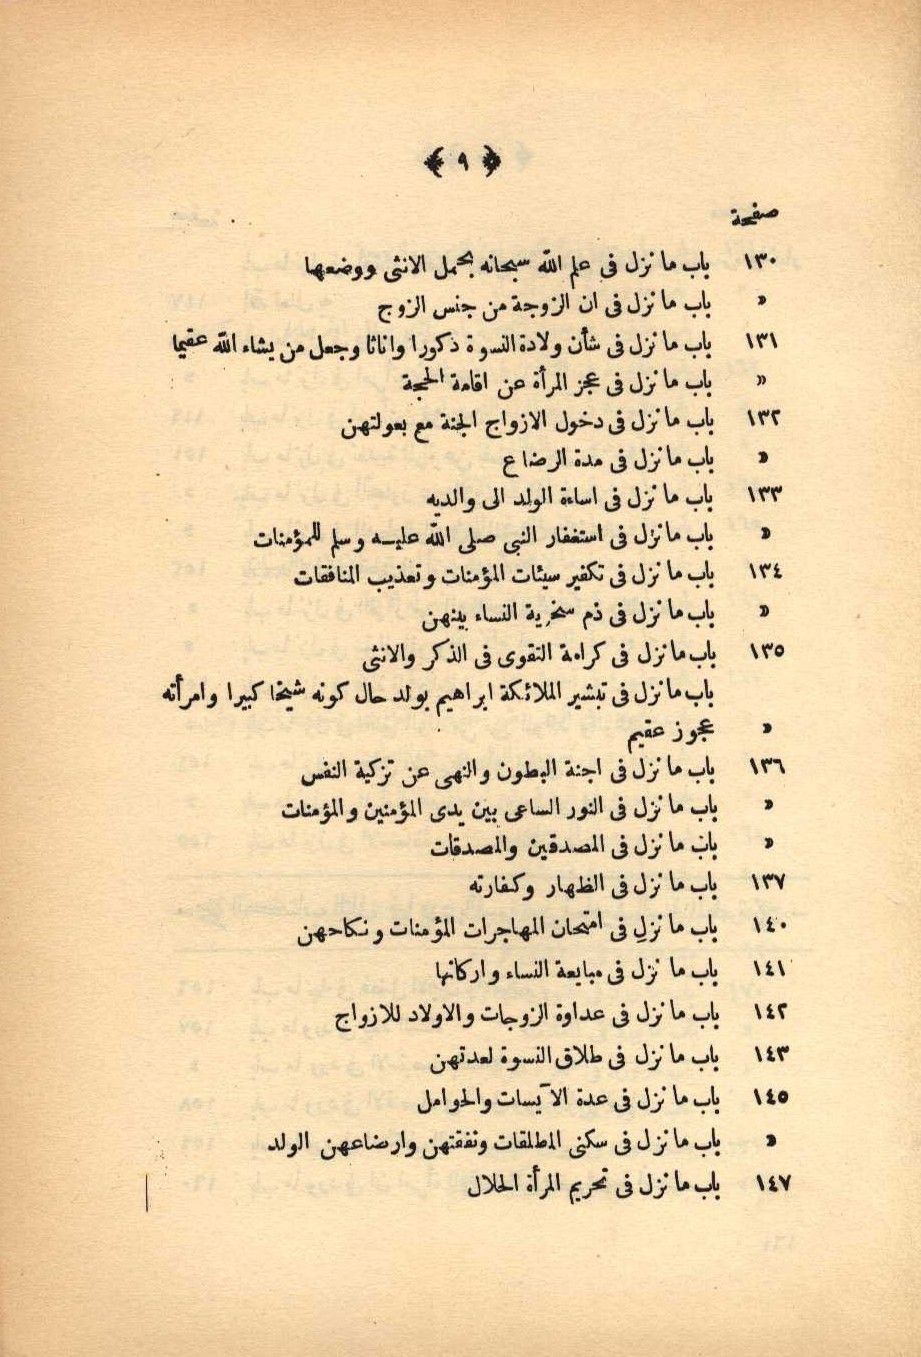 ﴿ ٩ ﴾
صفحة
١٣٠ باب ما نزل فى علم الله سبحانه بحمل الانثى ووضعها
« باب ما نزل فى ان الزوجة من جنس الزوج
١٣١ باب ما نزل فى شأن ولادة النسوة ذكورا واناثا وجعل من يشاء الله عقيما
« باب ما نزل فى عجز المرأة عن اقامة الحجة
١٣٢ باب ما نزل فى دخول الازواج الجنة مع بعولتهن
« باب ما نزل فى مدة الرضاع
١٣٣ باب ما نزل فى اساءة الولد الى والديه
« باب ما نزل فى استغفار النبى صلى الله عليه وسلم للمؤمنات
١٣٤ باب ما نزل فى تكفير سيئات المؤمنات وتعذيب المنافقات
« باب ما نزل فى ذم سخرية النساء بينهن
١٣٥ باب ما نزل فى كرامة التقوى فى الذكر والانثى
باب ما نزل فى تبشير الملائكة ابراهيم بولد حال كونه شيخا كبيرا وامرأته
« عجوز عقيم
١٣٦ باب ما نزل فى اجنة البطون والنهى عن تزكية النفس
« باب ما نزل فى النور الساعى بين يدى المؤمنين والمؤمنات
« باب ما نزل فى المصدقين والمصدقات
١٣٧ باب ما نزل فى الظهار وكفارته
١٤٠ باب ما نزل فى امتحان المهاجرات المؤمنات ونكاحهن
١٤١ باب ما نزل فى مبايعة النساء واركانها
١٤٢ باب ما نزل فى عداوة الزوجات والاولاد للازواج
١٤٣ باب ما نزل فى طلاق النسوة لعدتهن
١٤٥ باب ما نزل فى عدة الآيسات والحوامل
« باب ما نزل فى سكنى المطلقات ونفقتهن وارضاعهن الولد
١٤٧ باب ما نزل فى تحريم المرأة الحلال